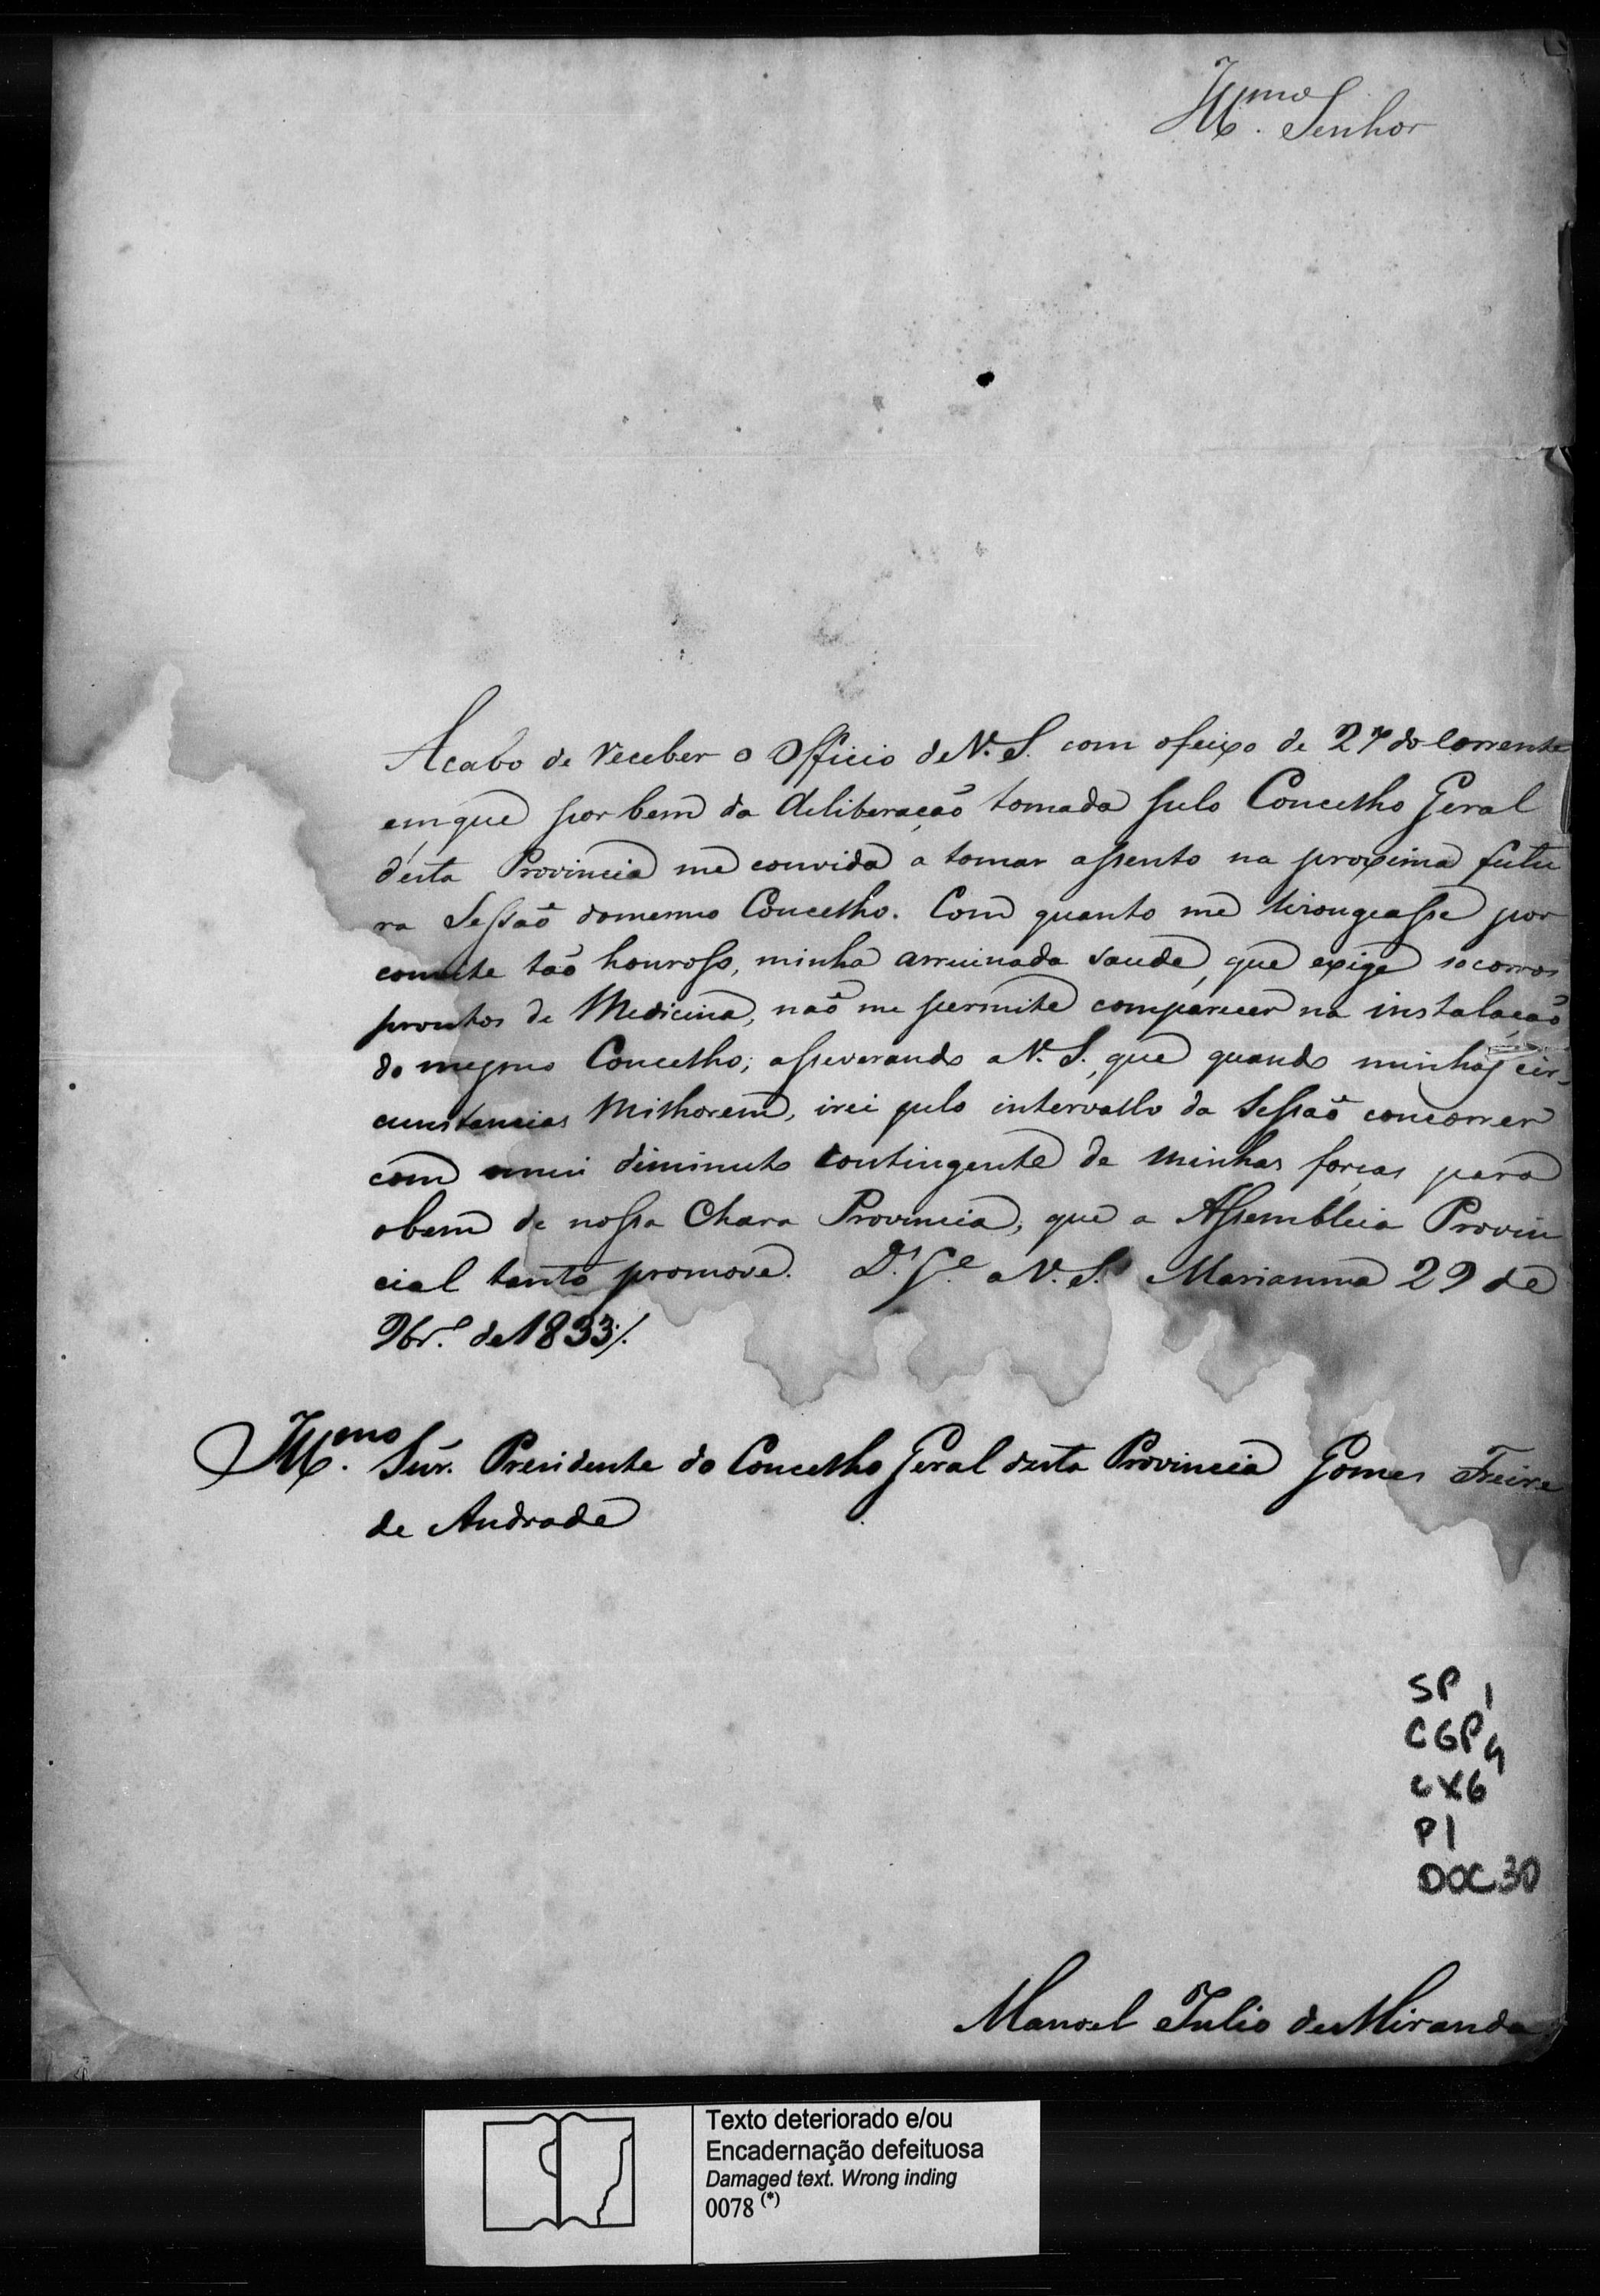 Illmo. Senhor
Acabo de receber o Officio de V. S. com ofeixo de 27 do Corrente
em que por bem da deliberação tomada pelo Concelho Geral
desta Provincia me convida a tomar assento na proxima futu
ra Sessaõ domesmo Concelho. Com quanto me lisongeasse por
convite taõ honroso, minha arruinada saude, que exige socorros
prontos de Medicina, naõ me permite comparecer na instalaçaõ
do mesmo Concelho; asseverando a V. S., que quando minhas cir-
cunstancias Milhorem, irei pelo intervallo da Sessaõ concorrer
com mui diminuto contingente de minhas forças para
obem de nossa Chara Provincia, que a Assembleia Provin
cial tanto promove. Ds. Ge. a V. S. Marianna 29 de
9br.o de 1833/.
Illmo. Snr. Presidente do Concelho Geral desta Provincia Gomes Freire
de Andrade
SP 1
CGP 4
CX6
P1
DOC.30
Manoel Julio de Miranda
Texto deteriorado e/ou
Encadernação defeituosa
Damaged text. Wrong inding
0078 (*)